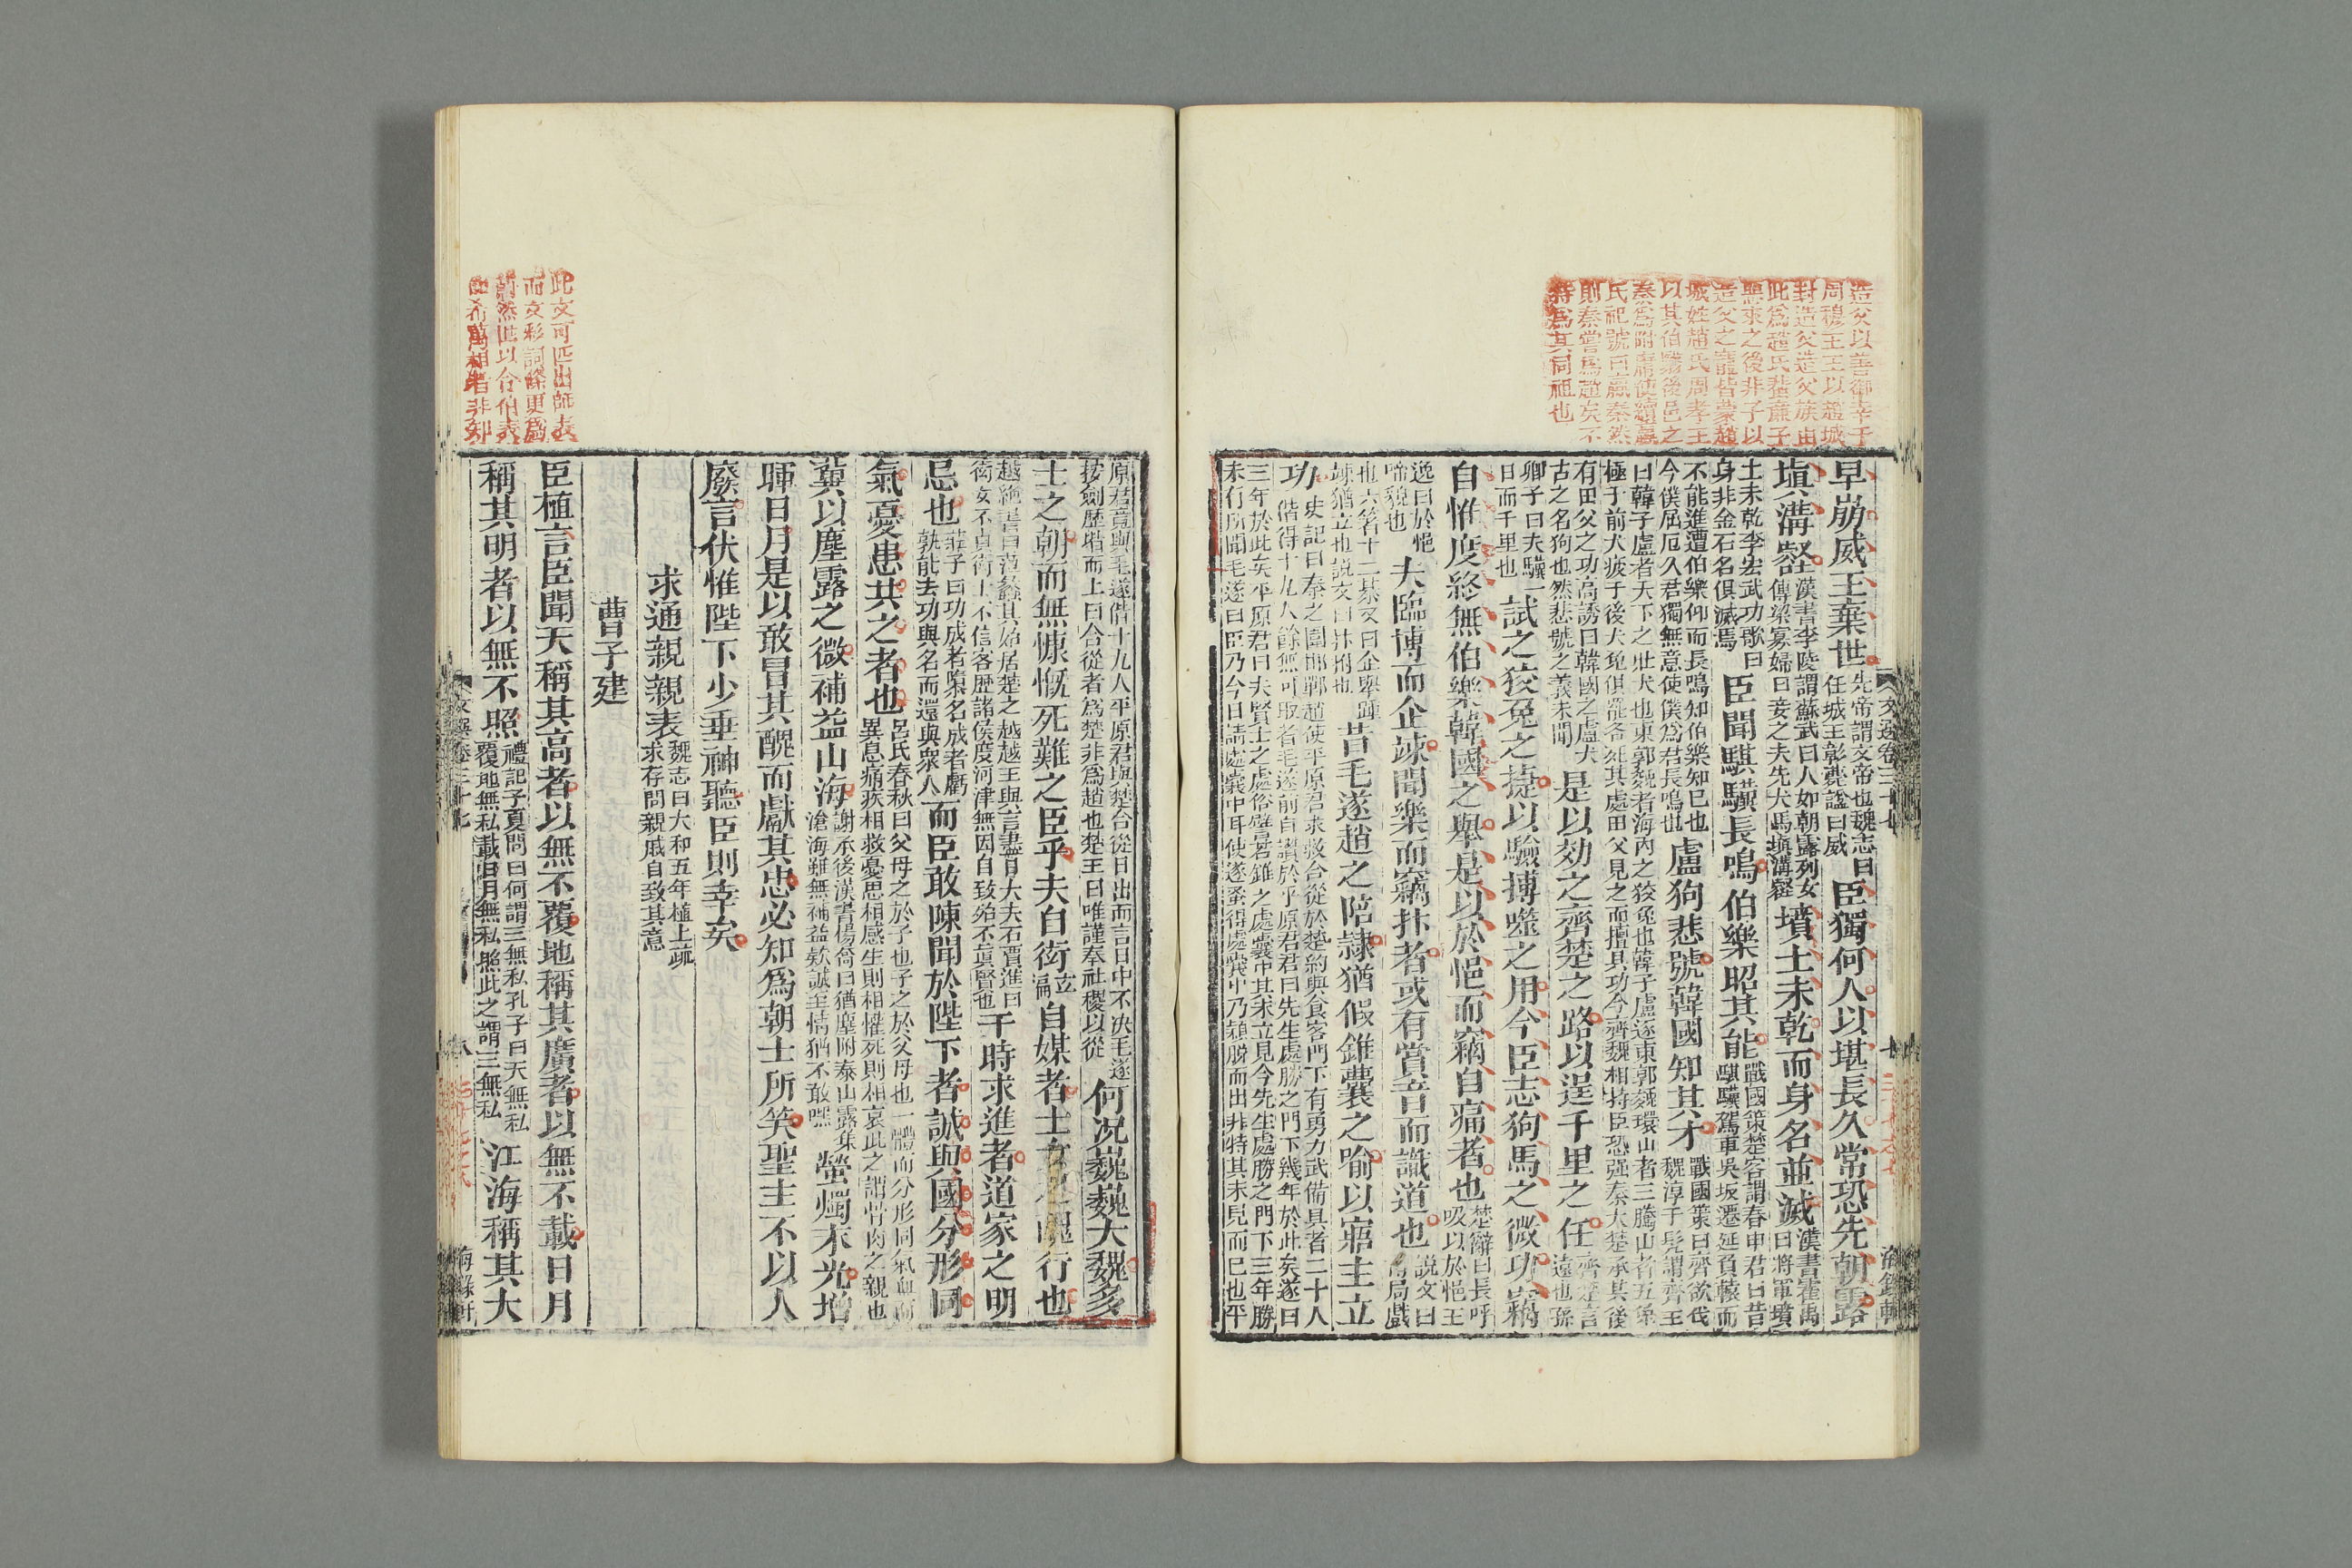 造父以善御幸于
周穆王王以趙城
封造父造父族由
此爲趙氏蜚廉子
惡來之後非子以
造父之寵皆蒙趙
城姓趙氏周孝王
以其伯翳後邑之
秦爲附庸使續嬴
氏祀號曰嬴秦然
則秦嘗爲趙矣不
特爲其同祖也
文選卷三十七
七
海錄軒
早崩威王棄世先帝謂文帝也魏志曰
任城王彰薨謚曰威臣獨何人以堪長久常恐先朝露
填溝壑漢書李陵謂蘇武曰人如朝露列女
傳梁寡婦曰妾之夫先犬馬填溝壑墳土未乾而身名並滅漢書霍禹
曰將軍墳
土未乾李宏武功歌曰
身非金石名俱滅焉臣聞騏驥長鳴伯樂昭其能戰國策楚客謂春申君曰昔
騏驥駕車吳坂遷延負轅而
不能進遭伯樂仰而長鳴知伯樂知已也
今僕屈厄久君獨無意使僕爲君長鳴也盧狗悲號韓國知其才戰國策曰齊欲伐
魏淳于髡謂齊王
曰韓子盧者天下之壯犬也東郭㕙者海內之狡兔也韓子盧逐東郭㕙環山者三騰山者五兔
極于前犬疲于後犬兔俱罷各死其處田父見之而擅其功今齊魏相持臣恐强秦大楚承其後
有田父之功高誘曰韓國之盧犬
古之名狗也然悲號之義未聞是以効之齊楚之路以逞千里之任齊楚言
遠也孫
卿子曰夫驥一
日而千里也試之狡兔之捷以驗搏噬之用今臣志狗馬之微功竊
自惟度終無伯樂韓國之舉是以於悒而竊自痛者也楚辭曰長呼
吸以於悒王
逸曰於悒
啼貌也夫臨博而企竦聞樂而竊抃者或有賞音而識道也說文曰
博局戲
也六箸十二棊又曰企舉踵
竦猶立也說文曰抃拊也昔毛遂趙之陪隸猶假錐囊之喻以寤主立
功史記曰秦之圍邯鄲趙使平原君求救合從於楚約與食客門下有勇力武備具者二十人
偕得十九人餘無可取者毛遂前自讚於平原君君曰先生處勝之門下幾年於此矣遂曰
三年於此矣平原君曰夫賢士之處俗譬若錐之處囊中其末立見今先生處勝之門下三年勝
未有所聞毛遂曰臣乃今日請處囊中耳使遂蚤得處囊中乃穎脫而出非特其末見而已也平
原君竟與毛遂偕十九人平原君與楚合從日出而言日中不決毛遂
按劍歷堦而上曰合從者爲楚非爲趙也楚王曰唯謹奉社稷以從何况巍巍大魏多
士之朝而無慷慨死難之臣乎夫自衒自媒者士女之醜行也
越絕書曰范蠡其始居楚之越越王與言盡日大夫石買進曰
衒女不貞衒士不信客歷諸侯度河津無因自致殆不眞賢也干時求進者道家之明
忌也莊子曰功成者隳名成者虧
孰能去功與名而還與衆人而臣敢陳聞於陛下者誠與國分形同
氣憂患共之者也呂氏春秋曰父母之於子也子之於父母也一體而分形同氣血而
異息痛疾相救憂思相感生則相懽死則相哀此之謂骨肉之親也
冀以塵露之微補益山海謝承後漢書楊喬曰猶塵附泰山露集
滄海雖無補益欵誠至情猶不敢嘿螢燭末光增
輝日月是以敢冒其醜而獻其忠必知爲朝士所笑聖主不以人
廢言伏惟陛下少垂神聽臣則幸矣
求通親親表魏志曰太和五年植上疏
求存問親戚自致其意
曹子建
臣植言臣聞天稱其高者以無不覆地稱其廣者以無不載日月
稱其明者以無不照禮記子夏問曰何謂三無私孔子曰天無私
覆地無私載日月無私照此之謂三無私江海稱其大
文選卷三十七
八
海錄軒
此文可匹出師表
而文彩詞條更爲
蔚然世以令伯表
匹希萬相者非知